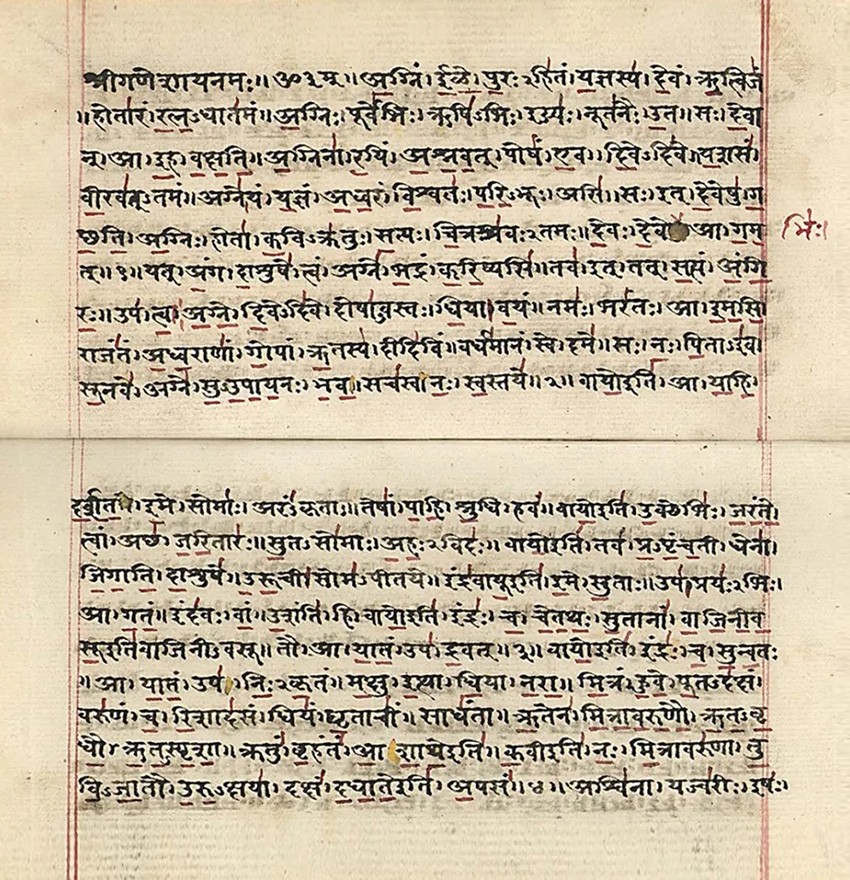 श्रीगणेशायनमः॥ॐ३म्॥अग्निं।ईळे।पुरःऽहितं।यज्ञस्य।देवं।ऋत्विजं
॥होतारं।रत्नऽधातमं॥अग्निः।पूर्वेभिः।ऋषिऽभिः।ईड्यः।नूतनैः।उत॥सः।देवा
न्।आ।इह।वक्षति॥अग्निना।रयिं।अश्नवत्।पोषं।एव।दिवेऽदिवे॥यशसं
वीरवत्ऽतमं॥अग्ने।यं।यज्ञं।अध्वरं।विश्वतः।परिऽभूः।असि॥सः।इत्।देवेषु।ग
छति।अग्निः।होता।कविऽक्रतुः।सत्यः।चित्रश्रवःऽतमः॥देवः।देवे आ।गम
भिः।
त्॥१॥यत्।अंग।दाशुषे।त्वं।अग्ने।भद्रं।करिष्यसि॥तव।इत्।तत्।सत्यं।अंगि
रः॥उप।त्वा।अग्ने।दिवेऽदिवे।दोषाऽवस्तः।धिया।वयं॥नमः।भरंतः।आ।इमसि
राजंतं।अध्वराणां।गोपां।ऋतस्य।दीदिविं॥वर्धमानं।स्वे।दमे॥सः।नः।पिताऽइव
सूनवे।अग्ने।सुऽउपायनः।भव।सचस्व।नः।स्वस्तये॥२॥वायोइति।आ।याहि।
दर्शत।इमे।सोमाः।अरंऽकृताः॥तेषां।पाहि।श्रुधि।हवं॥वायोइति।उक्थेभिः।जरंते।
त्वां।अछ।जरितारः॥सुतऽसोमाः।अहःऽविदः॥वायोइति।तव।प्रऽपृंचती।धेना।
जिगाति।दाशुषे॥उरूची।सोमऽपीतये॥इंद्रवायूइति।इमे।सुताः॥उप।प्रयःऽभिः।
आ।गतं॥इंदवः।वां।उशंति।हि।वायोइति।इंद्रः।च।चेतथः।सुतानां।वाजिनीव
सूइतिवाजिनीऽवसू॥तौ।आ।यातं।उप।द्रवत्॥३॥वायोइति।इंद्रः।च।सुन्वतः
॥आ।यातं।उप।निःऽकृतं॥मक्षु।इत्था।धिया।नरा॥मित्रं।हुवे।पूतऽदक्षं।
वरुणं।च।रिशादसं।धियं।घृताचीं॥साधंता॥ऋतेन।मित्रावरुणौ।ऋतऽवृ
धौ।ऋतऽस्पृशा॥क्रतुं।बृहंतं।आशाथेइति॥कवीइति।नः।मित्रावरुणा।तु
विऽजातौ।उरुऽक्षया।दक्षं।दधातेइति।अपसं॥४॥अश्विना।यज्वरीः।इषः।